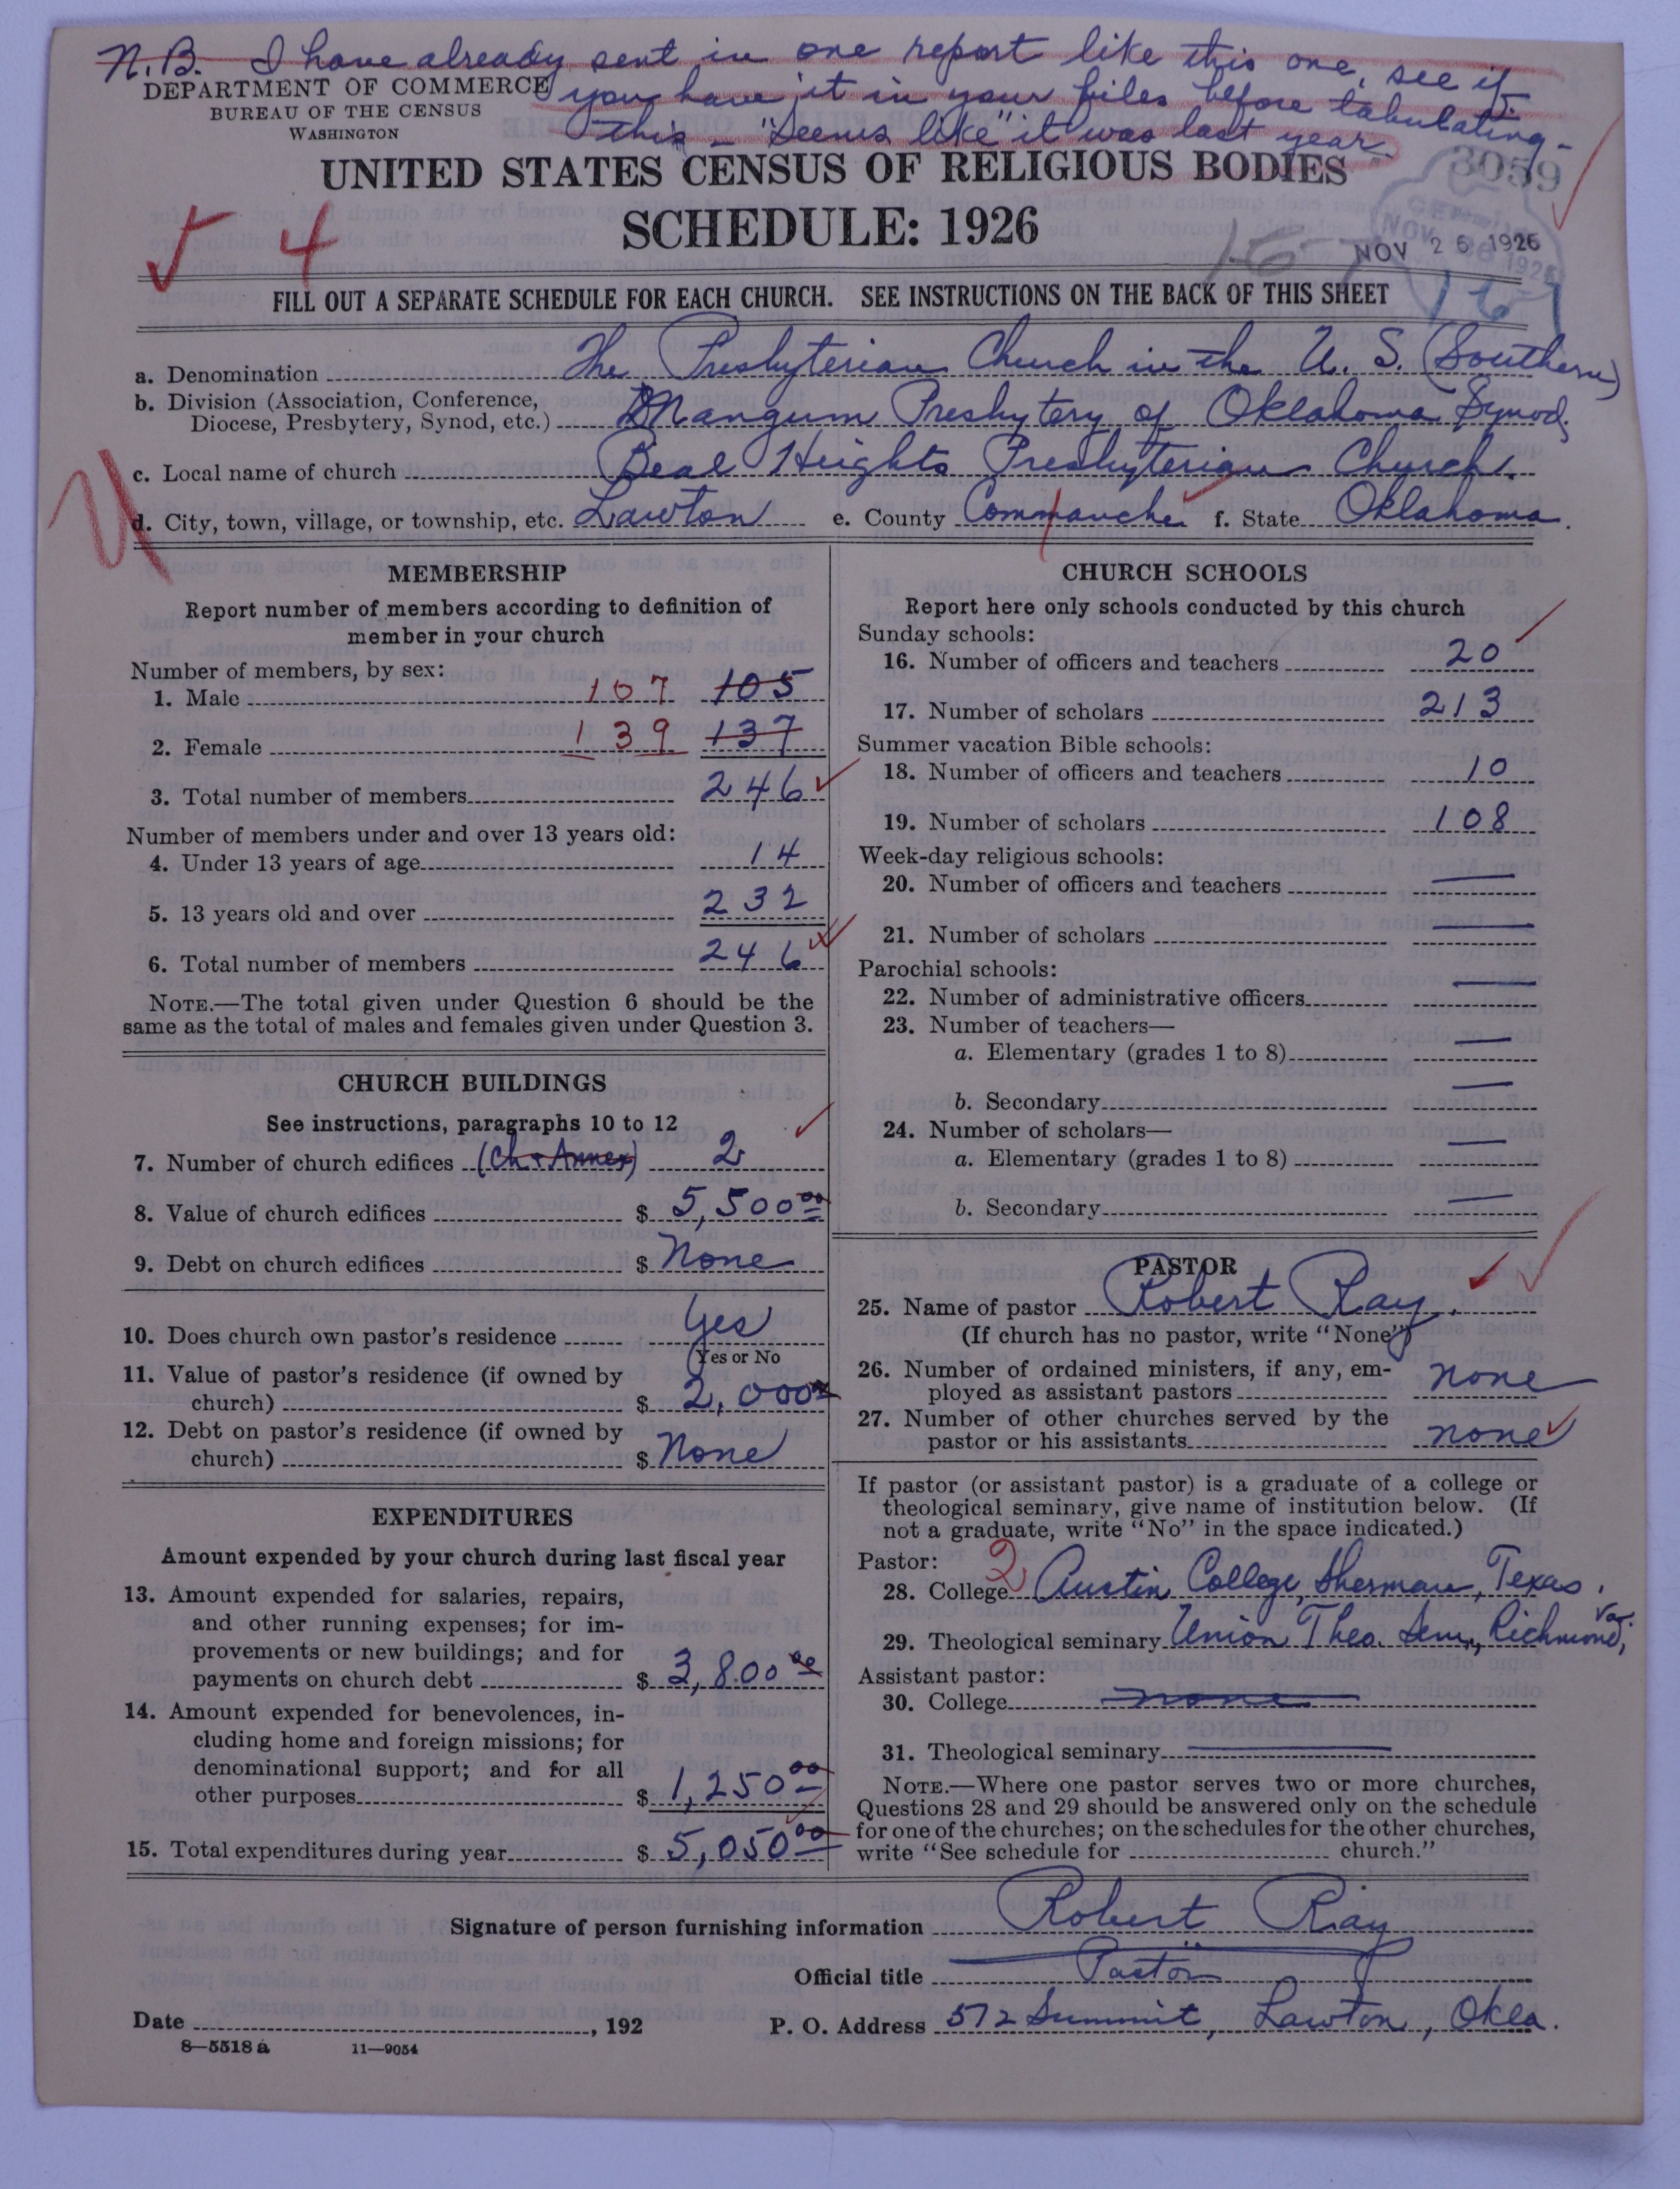 N.B. I have already sent in one report like this one, see if
you have it in your files before tabulating
this - "Seems like" it was last year.
DEPARTMENT OF COMMERCE
BUREAU OF THE CENSUS
WASHINGTON
UNITED STATES CENSUS OF RELIGIOUS BODIES
3059
SCHEDULE: 1926
4
NOV 26 1926
16
FILL OUT A SEPARATE SCHEDULE FOR EACH CHURCH. SEE INSTRUCTIONS ON THE BACK OF THIS SHEET
a. Denomination The Presbyterian Church in the U. S. (Southern)
b. Division (Association, Conference,
Diocese, Presbytery, Synod, etc.) Mangum Presbytery of Oklahoma Synod,
c. Local name of church Beal Heights Presbyterian Church.
d. City, town, village, or township, etc. Lawton e. County Commanche f. State Oklahoma.
MEMBERSHIP
Report number of members according to definition of
member in your church
Number of members, by sex:
1. Male 107 105
2. Female 139 137
3. Total number of members 246
Number of members under and over 13 years old:
4. Under 13 years of age 14
5. 13 years old and over 232
6. Total number of members 246
NOTE.—The total given under Question 6 should be the
same as the total of males and females given under Question 3.
CHURCH BUILDINGS
See instructions, paragraphs 10 to 12
7. Number of church edifices (Ch + Annex) 2
8. Value of church edifices $ 5,500 00
9. Debt on church edifices $ None
10. Does church own pastor's residence Yes
Yes or No
11. Value of pastor's residence (if owned by
church) $ 2,000 00
12. Debt on pastor's residence (if owned by
church) $ None
EXPENDITURES
Amount expended by your church during last fiscal year
13. Amount expended for salaries, repairs,
and other running expenses; for im-
provements or new buildings; and for
payments on church debt $ 3,800 00
14. Amount expended for benevolences, in-
cluding home and foreign missions; for
denominational support; and for all
other purposes $ 1,250 00
15. Total expenditures during year $ 5,050 00
CHURCH SCHOOLS
Report here only schools conducted by this church
Sunday schools:
16. Number of officers and teachers 20
17. Number of scholars 213
Summer vacation Bible schools:
18. Number of officers and teachers 10
19. Number of scholars 108
Week-day religious schools:
20. Number of officers and teachers —
21. Number of scholars —
Parochial schools:
22. Number of administrative officers —
23. Number of teachers—
a. Elementary (grades 1 to 8) —
b. Secondary —
24. Number of scholars—
a. Elementary (grades 1 to 8) —
b. Secondary —
PASTOR
25. Name of pastor Robert Ray.
(If church has no pastor, write "None")
26. Number of ordained ministers, if any, em-
ployed as assistant pastors none
27. Number of other churches served by the
pastor or his assistants none
If pastor (or assistant pastor) is a graduate of a college or
theological seminary, give name of institution below. (If
not a graduate, write "No" in the space indicated.)
Pastor: 2
28. College Austin College, Sherman, Texas.
29. Theological seminary Union Theo. Sem., Richmond, Va.
Assistant pastor:
30. College none
31. Theological seminary —
NOTE.—Where one pastor serves two or more churches,
Questions 28 and 29 should be answered only on the schedule
for one of the churches; on the schedules for the other churches,
write "See schedule for church."
Signature of person furnishing information Robert Ray
Official title Pastor
Date , 192 P. O. Address 572 Summit, Lawton, Okla.
8—5518 a 11—9054